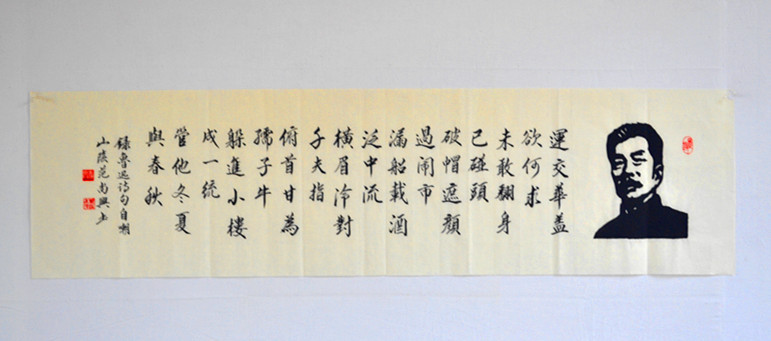 運交華蓋
欲何求
未敢翻身
已碰頭
破帽遮顏
過鬧市
漏船載酒
泛中流
橫眉冷對
千夫指
俯首甘為
孺子牛
躲進小樓
成一統
管他冬夏
與春秋
錄魯迅詩句自嘲
山陰范尚興书